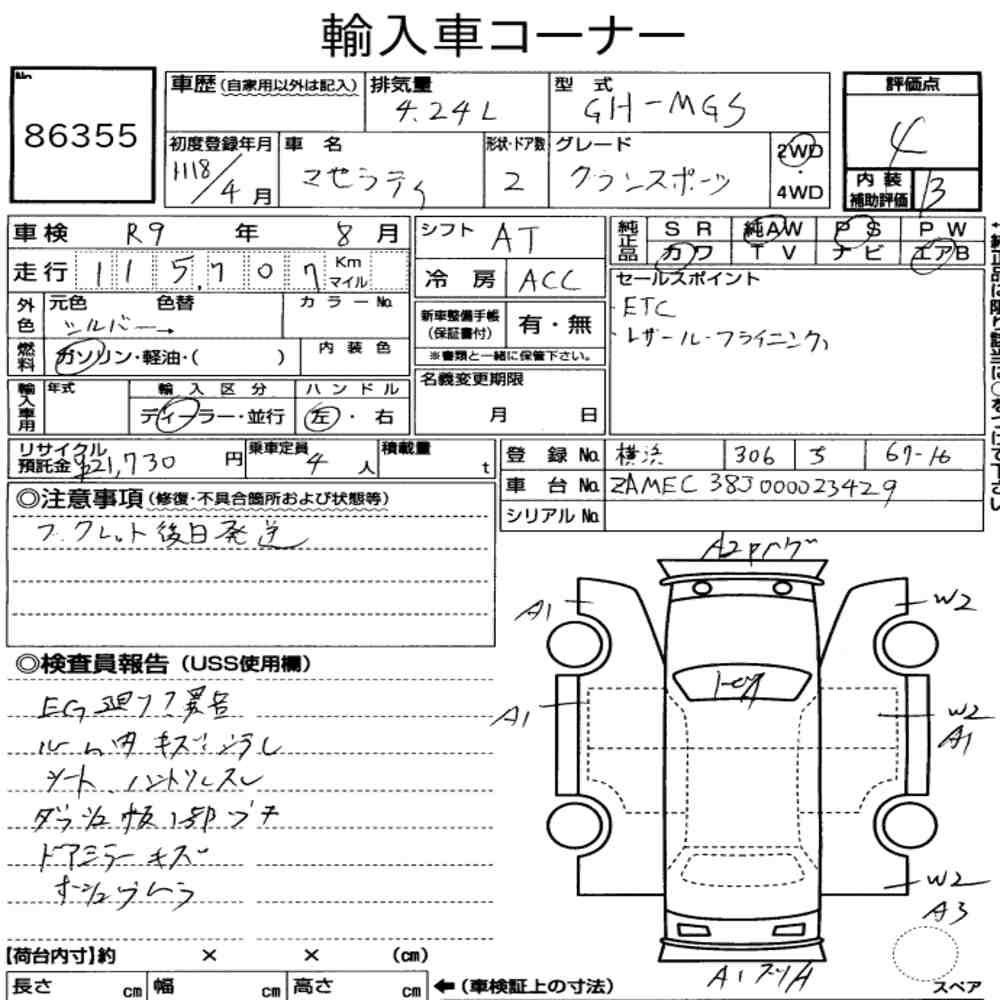 輸入車コーナー
No.
86355
車歴 (自家用以外は記入)
排気量
4.24L
型式
GH-MGS
評価点
4
初度登録年月
H18/4月
車名
マセラティ
形状・ドア数
2
グレード
グランスポーツ
2WD
・
4WD
内装
補助評価
B
車検 R9 年 8 月
走行 115,707 Km
マイル
シフト AT
冷房 ACC
純正品
SR 純AW PS PW
カワ TV ナビ エアB
外色
元色 色替
シルバー→
カラーNo.
燃料
ガソリン・軽油・( )
内装色
新車整備手帳
(保証書付)
有・無
※書類と一緒に保管下さい。
セールスポイント
・ETC
輸入車用
年式
輸入区分
ディーラー・並行
ハンドル
左・右
名義変更期限
月 日
リサイクル
預託金 ¥21,730 円
乗車定員
4 人
積載量
t
登録No. 横浜 306 67-16
車台No. ZAMEC38J000023429
シリアルNo.
◎注意事項 (修復・不具合箇所および状態等)
後日発送
◎検査員報告 (USS使用欄)
EG
ルーム内キズ
シート、ハンドルスレ
ダッシュ板1部
ドアミラーキズ
A2
A1
W2
A1
W2
A1
W2
A3
A1
スペア
【荷台内寸】約 × × (cm)
長さ cm 幅 cm 高さ cm
←(車検証上の寸法)